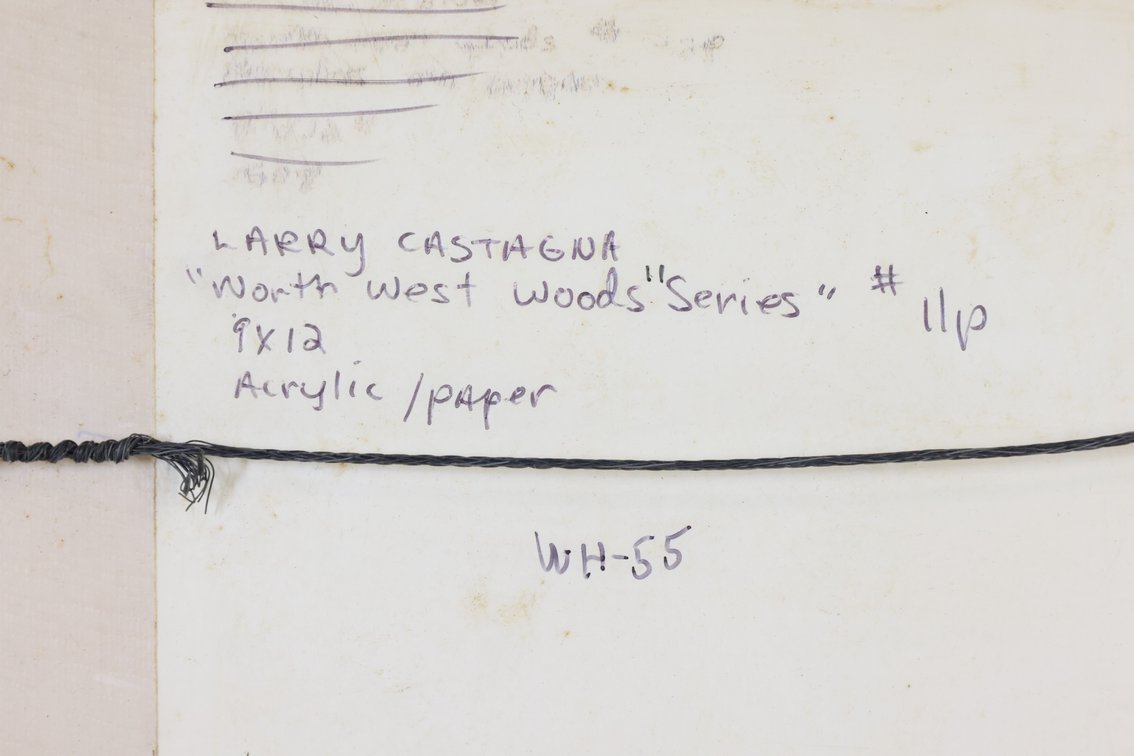 LARRY CASTAGNA
"North West Woods" Series" # 11p
9x12
Acrylic /paper
WH-55